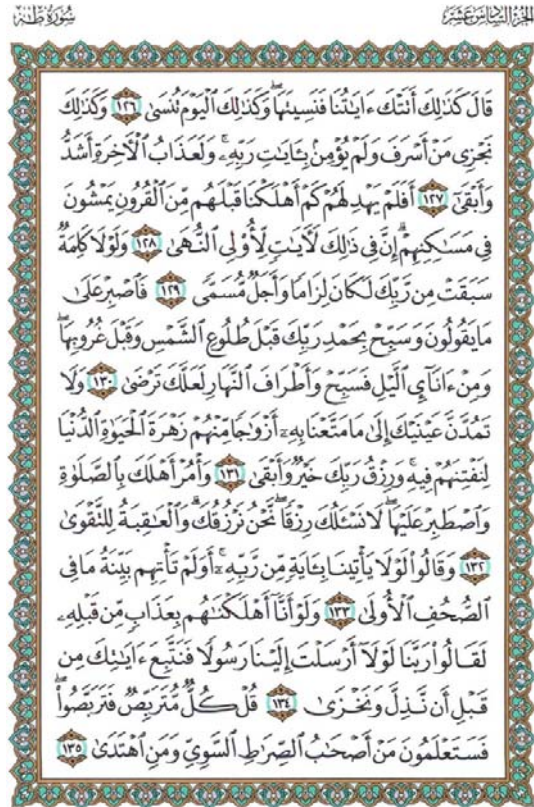 الجزء السادس عشر
سورة طه
قَالَ كَذَٰلِكَ أَتَتْكَ ءَايَٰتُنَا فَنَسِيتَهَا ۖ وَكَذَٰلِكَ ٱلْيَوْمَ تُنسَىٰ ١٢٦ وَكَذَٰلِكَ
نَجْزِى مَنْ أَسْرَفَ وَلَمْ يُؤْمِنۢ بِـَٔايَٰتِ رَبِّهِۦ ۚ وَلَعَذَابُ ٱلْءَاخِرَةِ أَشَدُّ
وَأَبْقَىٰٓ ١٢٧ أَفَلَمْ يَهْدِ لَهُمْ كَمْ أَهْلَكْنَا قَبْلَهُم مِّنَ ٱلْقُرُونِ يَمْشُونَ
فِى مَسَٰكِنِهِمْ ۗ إِنَّ فِى ذَٰلِكَ لَءَايَٰتٍ لِّأُو۟لِى ٱلنُّهَىٰ ١٢٨ وَلَوْلَا كَلِمَةٌ
سَبَقَتْ مِن رَّبِّكَ لَكَانَ لِزَامًا وَأَجَلٌ مُّسَمًّى ١٢٩ فَٱصْبِرْ عَلَىٰ
مَا يَقُولُونَ وَسَبِّحْ بِحَمْدِ رَبِّكَ قَبْلَ طُلُوعِ ٱلشَّمْسِ وَقَبْلَ غُرُوبِهَا ۖ
وَمِنْ ءَانَآئِ ٱلَّيْلِ فَسَبِّحْ وَأَطْرَافَ ٱلنَّهَارِ لَعَلَّكَ تَرْضَىٰ ١٣٠ وَلَا
تَمُدَّنَّ عَيْنَيْكَ إِلَىٰ مَا مَتَّعْنَا بِهِۦٓ أَزْوَٰجًا مِّنْهُمْ زَهْرَةَ ٱلْحَيَوٰةِ ٱلدُّنْيَا
لِنَفْتِنَهُمْ فِيهِ ۚ وَرِزْقُ رَبِّكَ خَيْرٌ وَأَبْقَىٰ ١٣١ وَأْمُرْ أَهْلَكَ بِٱلصَّلَوٰةِ
وَٱصْطَبِرْ عَلَيْهَا ۖ لَا نَسْـَٔلُكَ رِزْقًا ۖ نَّحْنُ نَرْزُقُكَ ۗ وَٱلْعَٰقِبَةُ لِلتَّقْوَىٰ
١٣٢ وَقَالُوا۟ لَوْلَا يَأْتِينَا بِـَٔايَةٍ مِّن رَّبِّهِۦٓ ۚ أَوَلَمْ تَأْتِهِم بَيِّنَةُ مَا فِى
ٱلصُّحُفِ ٱلْأُولَىٰ ١٣٣ وَلَوْ أَنَّآ أَهْلَكْنَٰهُم بِعَذَابٍ مِّن قَبْلِهِۦ
لَقَالُوا۟ رَبَّنَا لَوْلَآ أَرْسَلْتَ إِلَيْنَا رَسُولًا فَنَتَّبِعَ ءَايَٰتِكَ مِن
قَبْلِ أَن نَّذِلَّ وَنَخْزَىٰ ١٣٤ قُلْ كُلٌّ مُّتَرَبِّصٌ فَتَرَبَّصُوا۟ ۖ
فَسَتَعْلَمُونَ مَنْ أَصْحَٰبُ ٱلصِّرَٰطِ ٱلسَّوِىِّ وَمَنِ ٱهْتَدَىٰ ١٣٥